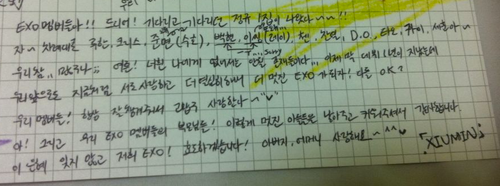 EXO 멤버들아!! 드디어! 기다리고 기다리던 정규 1집이 나왔다~~!!
자~ 차례대로 루한, 크리스, 준면(수호), 백현, 이씽(레이), 첸, 찬열, D.O, 타오, 카이, 세훈아~
우리 앞으로도 지금처럼 서로 사랑하고 더 열심히해서 더 멋진 EXO가 되자! 다들 OK?
우리 멤버들! 항상 잘 챙겨줘서 고맙고 사랑한다~
아! 그리고 우리 EXO 멤버들의 부모님들! 이렇게 멋진 아들들을 낳아주고 키워주셔서 감사합니다
이 은혜 잊지 않고 저희 EXO! 효도하겠습니다! 아버지, 어머니 사랑해요~^^♥
XIUMIN